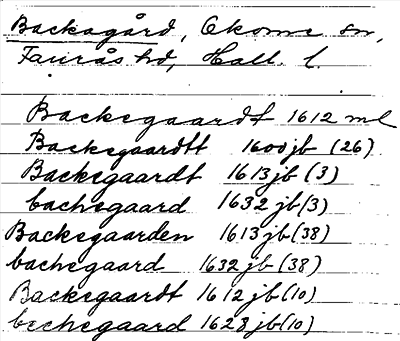 Backagård, Okome sn,
Faurås hd, Hall. l.
Backegaardt 1612 ml
Backegaardtt 1600 jb (26)
Backegaardt 1613 jb (3)
bachegaard 1632 jb (3)
Backegaarden 1613 jb (38)
bachegaard 1632 jb (38)
Backegaardt 1612 jb (10)
bechegaard 1628 jb (10)